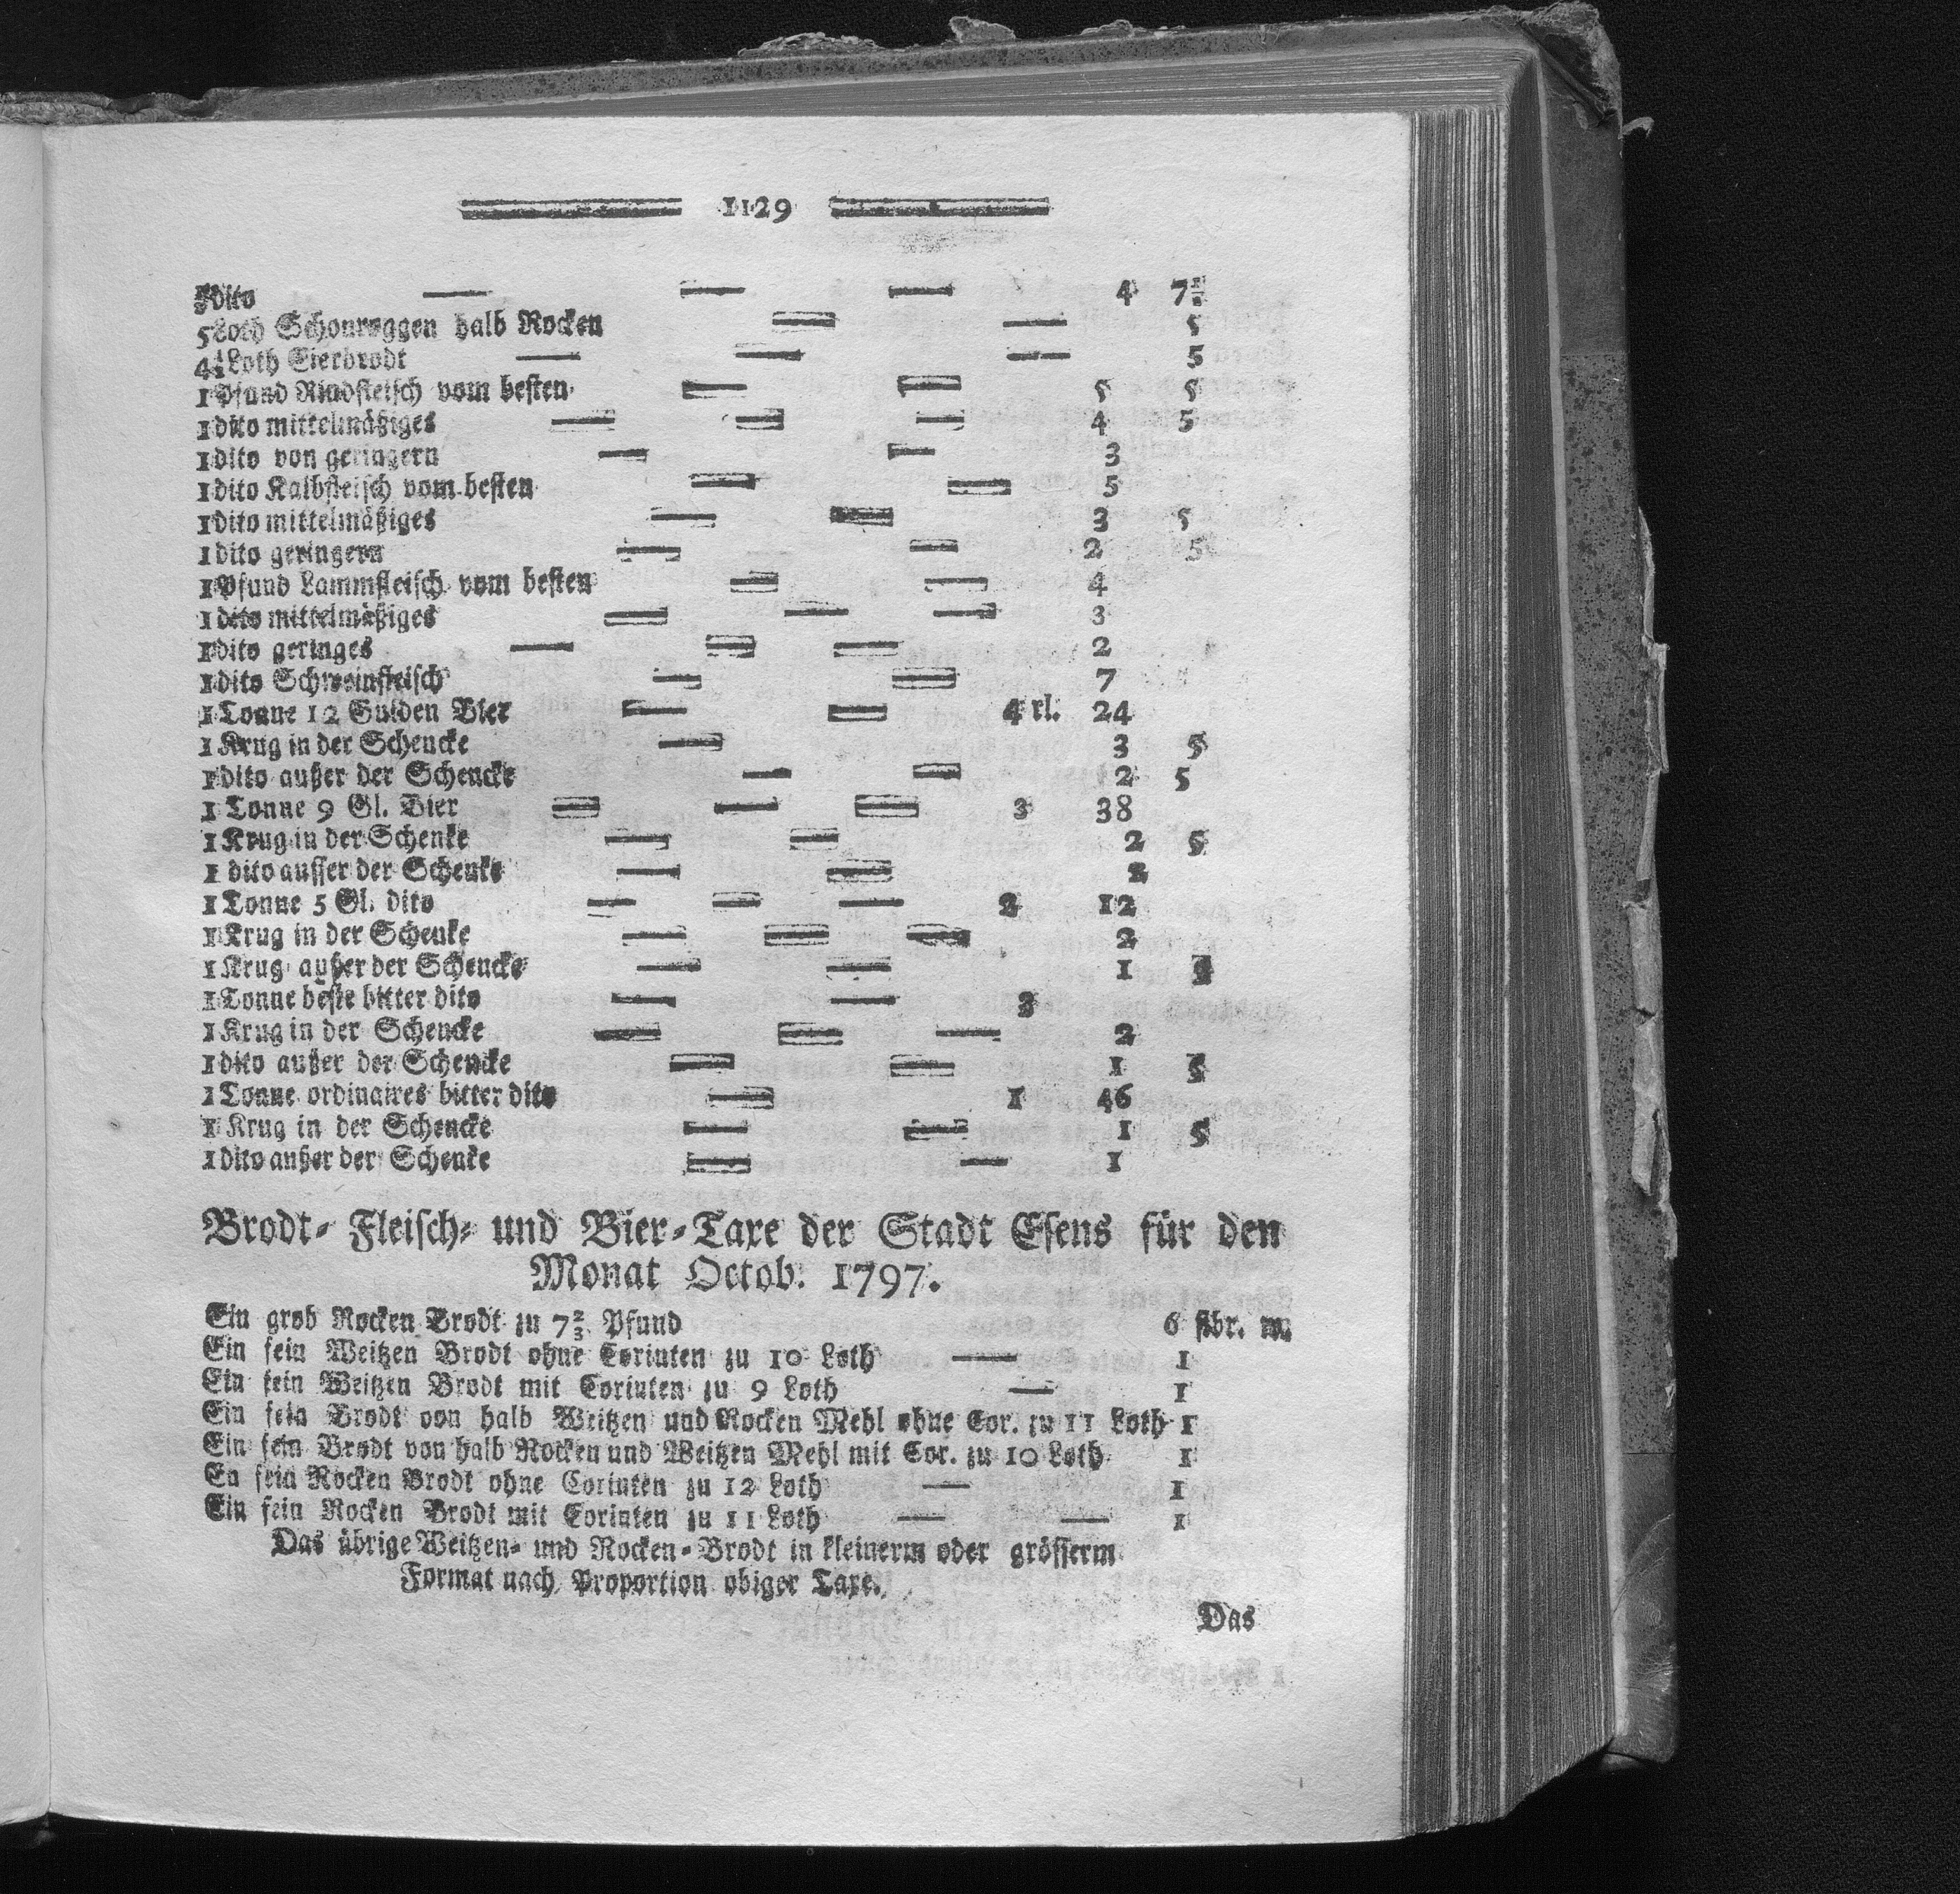 1129
dito — — — 4 7½
5 Loth Schonroggen halb Rocken — — 5
4½ Loth Eierbrodt — — — 5
1 Pfund Rindfleisch vom besten — — 5 5
1 dito mittelmäßiges — — — 4 5
1 dito von geringern — — 3
1 dito Kalbfleisch vom besten — — 5
1 dito mittelmäßiges — — 3 5
1 dito geringern — — 2 5
1 Pfund Lammfleisch vom besten — — 4
1 dito mittelmäßiges — — — 3
1 dito geringes — — — 2
1 dito Schweinfleisch — — 7
1 Tonne 12 Gulden Bier — — 4 rl. 24
1 Krug in der Schencke — 3 5
1 dito außer der Schencke — — 2 5
1 Tonne 9 Gl. Bier — — — 3 38
1 Krug in der Schenke — — 2 5
1 dito ausser der Schenke — — 2
1 Tonne 5 Gl. dito — — — 2 12
1 Krug in der Schenke — — — 2
1 Krug außer der Schencke — — 1
1 Tonne beste bitter dito — — 3
1 Krug in der Schencke — — — 2
1 dito außer der Schencke — — 1 5
1 Tonne ordinaires bitter dito — 1 46
1 Krug in der Schencke — — 1 5
1 dito außer der Schenke — — 1
Brodt- Fleisch- und Bier-Taxe der Stadt Esens für den
Monat Octob. 1797.
Ein grob Rocken Brodt zu 7⅔ Pfund 6 stbr. w.
Ein fein Weitzen Brodt ohne Corinten zu 10 Loth — 1
Ein fein Weitzen Brodt mit Corinten zu 9 Loth — 1
Ein fein Brodt von halb Weitzen und Rocken Mehl ohne Cor. zu 11 Loth 1
Ein fein Brodt von halb Rocken und Weitzen Mehl mit Cor. zu 10 Loth 1
En fein Rocken Brodt ohne Corinten zu 12 Loth — 1
Ein fein Rocken Brodt mit Corinten zu 11 Loth — — 1
Das übrige Weitzen- und Rocken-Brodt in kleinerm oder grösserm
Format nach Proportion obiger Taxe.
Das